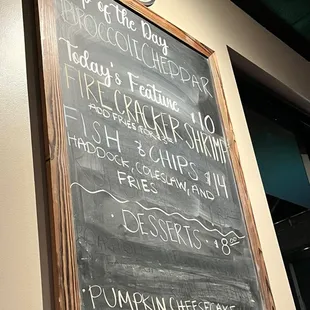 of the Day
BROCCOLI CHEDDAR
Today's Feature
FIRECRACKER SHRIMP $10
ADD FRIES FOR
FISH & CHIPS $14
HADDOCK, COLESLAW, AND
FRIES
· DESSERTS · $8
· PUMPKIN CHEESECAKE